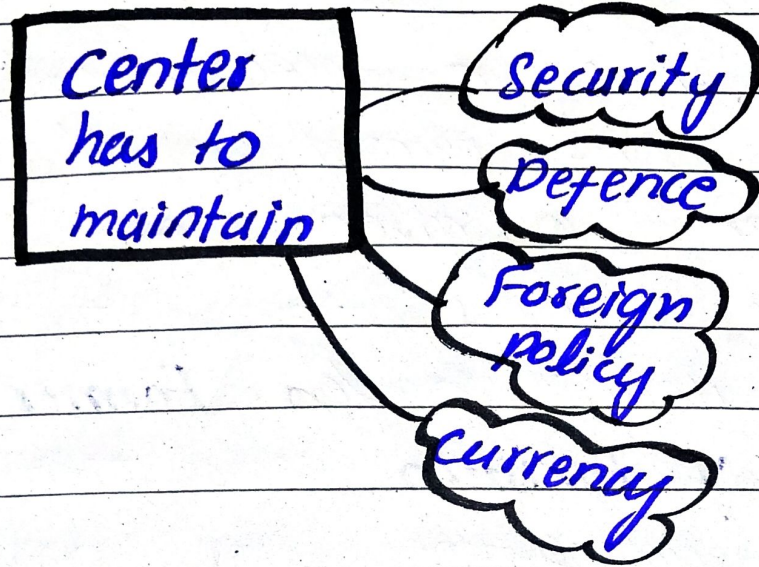 Center
has to
maintain
Security
Defence
Foreign
policy
currency